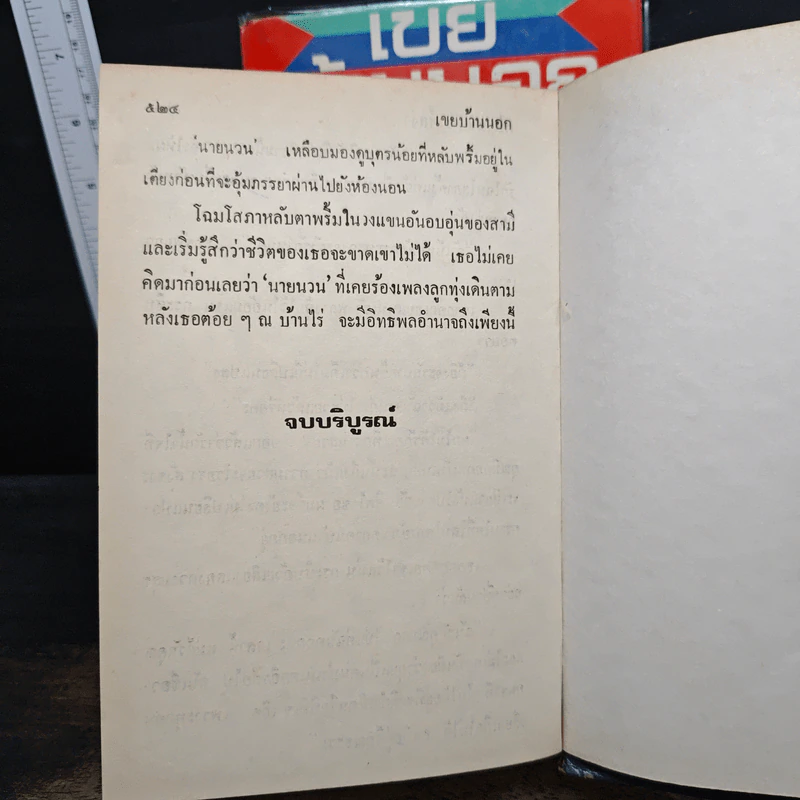 เขย
บ้านนอก
๕๒๔
เขยบ้านนอก
'นายนวน' เหลือบมองดูบุตรน้อยที่หลับพริ้มอยู่ใน
เตียงก่อนที่จะอุ้มภรรยาผ่านไปยังห้องนอน
โฉมโสภาหลับตาพริ้มในวงแขนอันอบอุ่นของสามี
และเริ่มรู้สึกว่าชีวิตของเธอจะขาดเขาไม่ได้ เธอไม่เคย
คิดมาก่อนเลยว่า 'นายนวน' ที่เคยร้องเพลงลูกทุ่งเดินตาม
หลังเธอต้อย ๆ ณ บ้านไร่ จะมีอิทธิพลอำนาจถึงเพียงนี้
จบบริบูรณ์